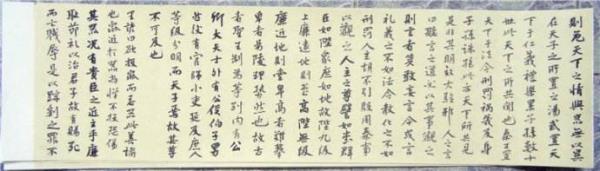 則是天下之情與器無以異
在天子之所置之湯武置天
下于仁義禮樂累子孫數十
世此天下之所共聞也秦王置
天下于法令刑罰禍幾及身
子孫誅絕此天下所共見
是非其明效大驗邪人之言
曰聽言之道必以其事觀之
則言者莫敢妄言今或言
禮義之不如法令教化之不如
刑罰人主胡不引殷周秦事
以觀之人主之尊譬如堂群
臣如陛眾庶如地故陛九級
上廉遠地則堂高陛無級
廉近地則堂卑高者難攀
卑者易陵理勢然也故古
者聖王制為等列內有公
卿大夫士外有公侯伯子男
然後有官師小吏延及庶人
等級分明而天子焉故其尊
不可及也
里諺曰欲投鼠而忌器此善諭
也鼠近於器尚憚不投恐傷
其器況有貴臣之近主乎廉
恥節禮以治君子故有賜死
而亡戮辱是以黥劓之罪不